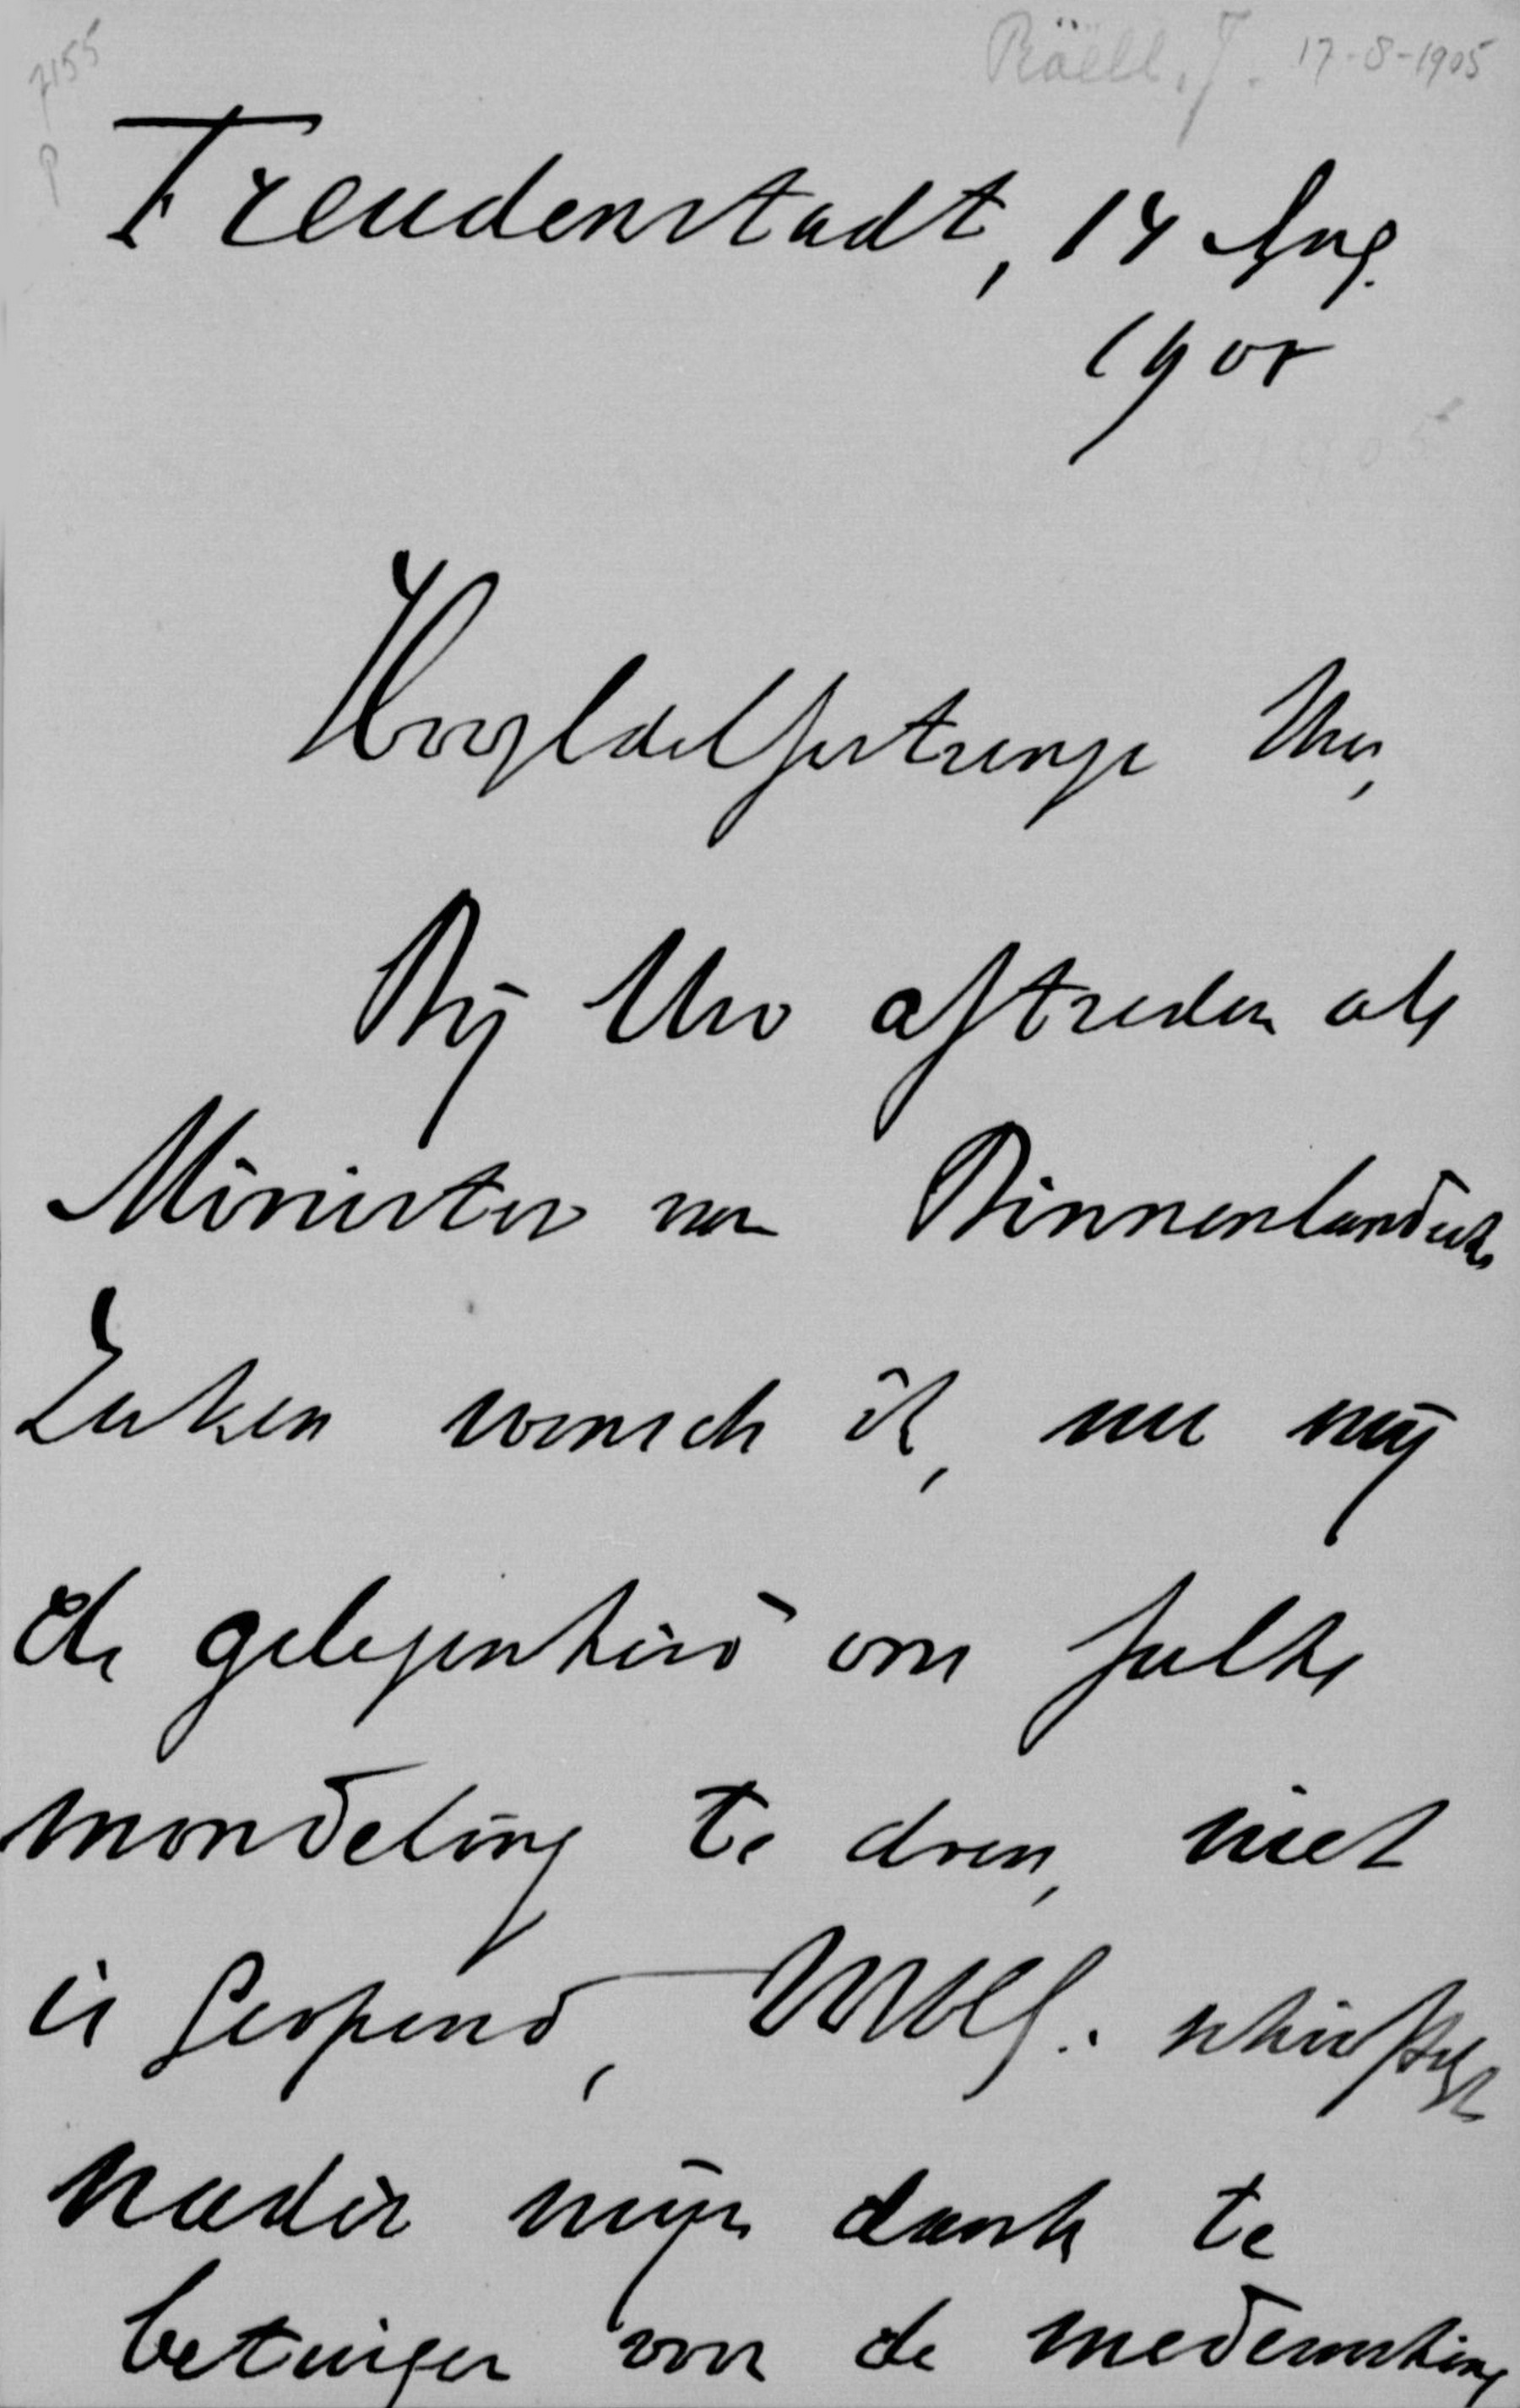 7155
P
Röell, J. 17-8-1905
Freudenstadt, 17 Aug.
1905
HoogEdelGestrenge Heer,
Bij Uw aftreden als
Minister van Binnenlandsche
Zaken wensch ik, nu mij
de gelegenheid om zulks
mondeling te doen, niet
is geopend, UHEG. schriftelijk
nader mijn dank te
betuigen voor de medewerking